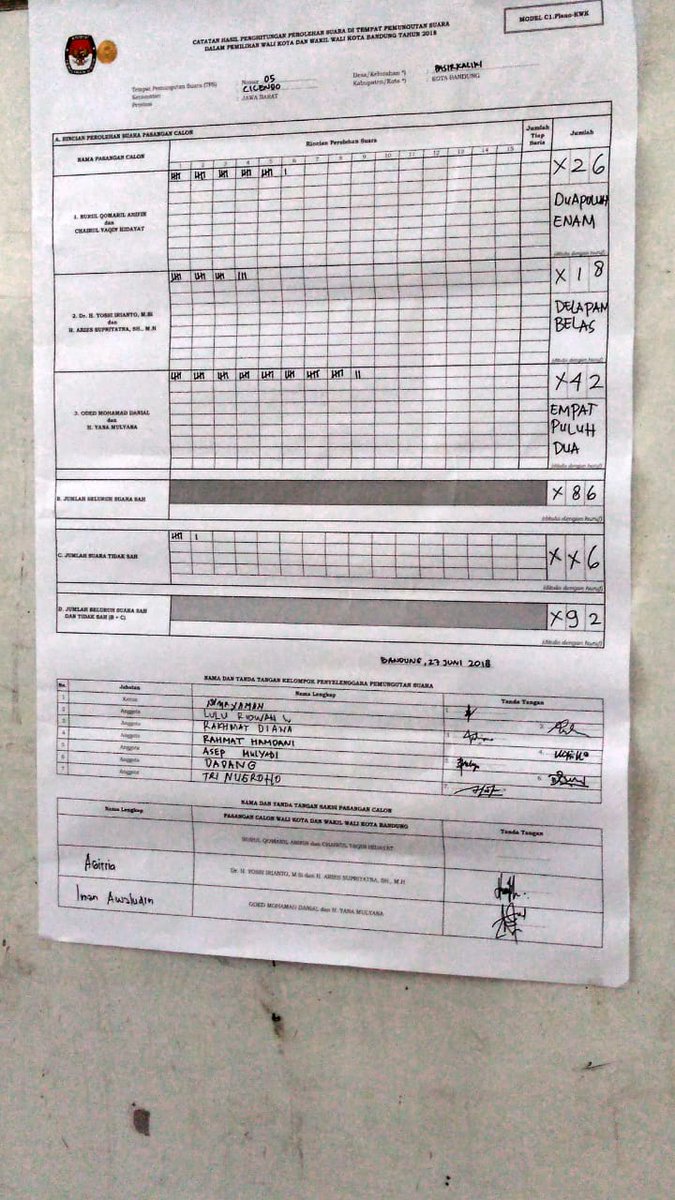 MODEL C1.Plano-KWK
CATATAN HASIL PENGHITUNGAN PEROLEHAN SUARA DI TEMPAT PEMUNGUTAN SUARA
DALAM PEMILIHAN WALI KOTA DAN WAKIL WALI KOTA BANDUNG TAHUN 2018
Tempat Pemungutan Suara (TPS) Nomor 05 Desa/Kelurahan *) : PASIRKALIKI
Kecamatan : CICENDO Kabupaten/Kota *) : KOTA BANDUNG
Provinsi : JAWA BARAT
A. RINCIAN PEROLEHAN SUARA PASANGAN CALON
NAMA PASANGAN CALON Rincian Perolehan Suara Jumlah Tiap Baris Jumlah
1 2 3 4 5 6 7 8 9 10 11 12 13 14 15
1. NURUL QOMARIL ARIFIN
dan
CHAIRUL YAQIN HIDAYAT
X26
DUAPOLUH
ENAM
(ditulis dengan huruf)
2. Dr. H. YOSSI IRIANTO, M.Si
dan
H. ARIES SUPRIYATNA, SH., M.H
X18
DELAPAN
BELAS
(ditulis dengan huruf)
3. ODED MOHAMAD DANIAL
dan
H. YANA MULYANA
X42
EMPAT
PULUH
DUA
(ditulis dengan huruf)
B. JUMLAH SELURUH SUARA SAH X86
(ditulis dengan huruf)
C. JUMLAH SUARA TIDAK SAH XX6
(ditulis dengan huruf)
D. JUMLAH SELURUH SUARA SAH
DAN TIDAK SAH (B + C) X92
(ditulis dengan huruf)
BANDUNG, 27 JUNI 2018
NAMA DAN TANDA TANGAN KELOMPOK PENYELENGGARA PEMUNGUTAN SUARA
No. Jabatan Nama Lengkap Tanda Tangan
1 Ketua 1.
2 Anggota LULU RIDWAN 2.
3 Anggota RAKHMAT DIANA 3.
4 Anggota RAHMAT HAMDANI 4.
5 Anggota ASEP MULYADI 5.
6 Anggota DADANG 6.
7 Anggota TRI NUGROHO 7.
NAMA DAN TANDA TANGAN SAKSI PASANGAN CALON
Nama Lengkap PASANGAN CALON WALI KOTA DAN WAKIL WALI KOTA BANDUNG Tanda Tangan
NURUL QOMARIL ARIFIN dan CHAIRUL YAQIN HIDAYAT
Dr. H. YOSSI IRIANTO, M.Si dan H. ARIES SUPRIYATNA, SH., M.H
Iman Awaludin ODED MOHAMAD DANIAL dan H. YANA MULYANA